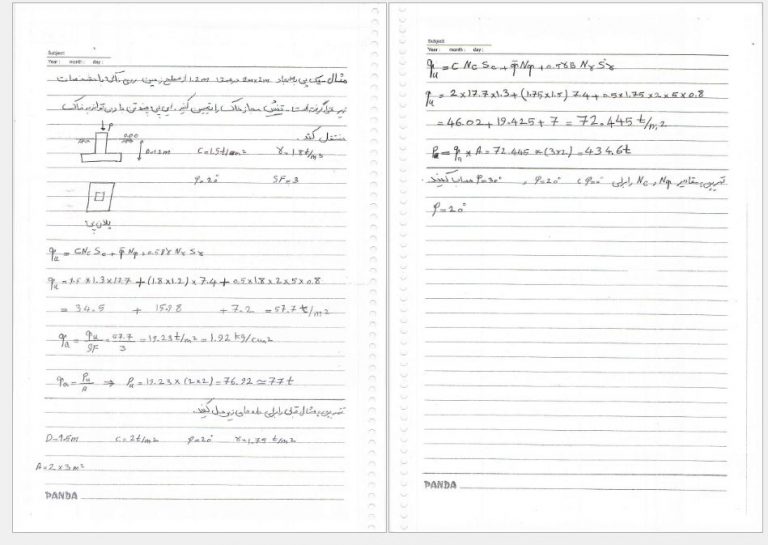 Subject
Year : month : day :
مثال: یک پی به ابعاد 2m×2m در عمق 1.2m از سطح زمین بر روی خاک با مشخصات
زیر قرار گرفته است. تنش مجاز خاک را تعیین کنید. این پی چند تن بار می تواند به خاک
منتقل کند.
P
D=1.2m C=1.5t/m2 γ=1.8t/m3
φ=20° SF=3
پلان پی
qu = CNc Sc + q̄ Nq + 0.5γB Nγ Sγ
qu = 1.5×1.3×17.7 + (1.8×1.2)×7.4 + 0.5×1.8×2×5×0.8
= 34.5 + 15.98 + 7.2 = 57.7 t/m2
qa = qu/SF = 57.7/3 = 19.23 t/m2 = 1.92 kg/cm2
qa = Pa/A ⇒ Pa = 19.23×(2×2) = 76.92 ≃ 77t
تمرین: مثال قبل را برای داده های زیر حل کنید.
D=1.5m C=2t/m2 φ=20° γ=1.75 t/m2
A=2×3m2
PANDA
Subject
Year : month : day :
qu = C Nc Sc + q̄ Nq + 0.5γB Nγ Sγ
qu = 2×17.7×1.3+(1.75×1.5) 7.4 + 0.5×1.75×2×5×0.8
= 46.02+19.425+7 = 72.445 t/m2
Pu = qu × A = 72.445×(3×2) = 434.6t
تمرین: مقادیر Nq و Nc را برای φ=0° , φ=20° , φ=30° حساب کنید
φ=20°
PANDA